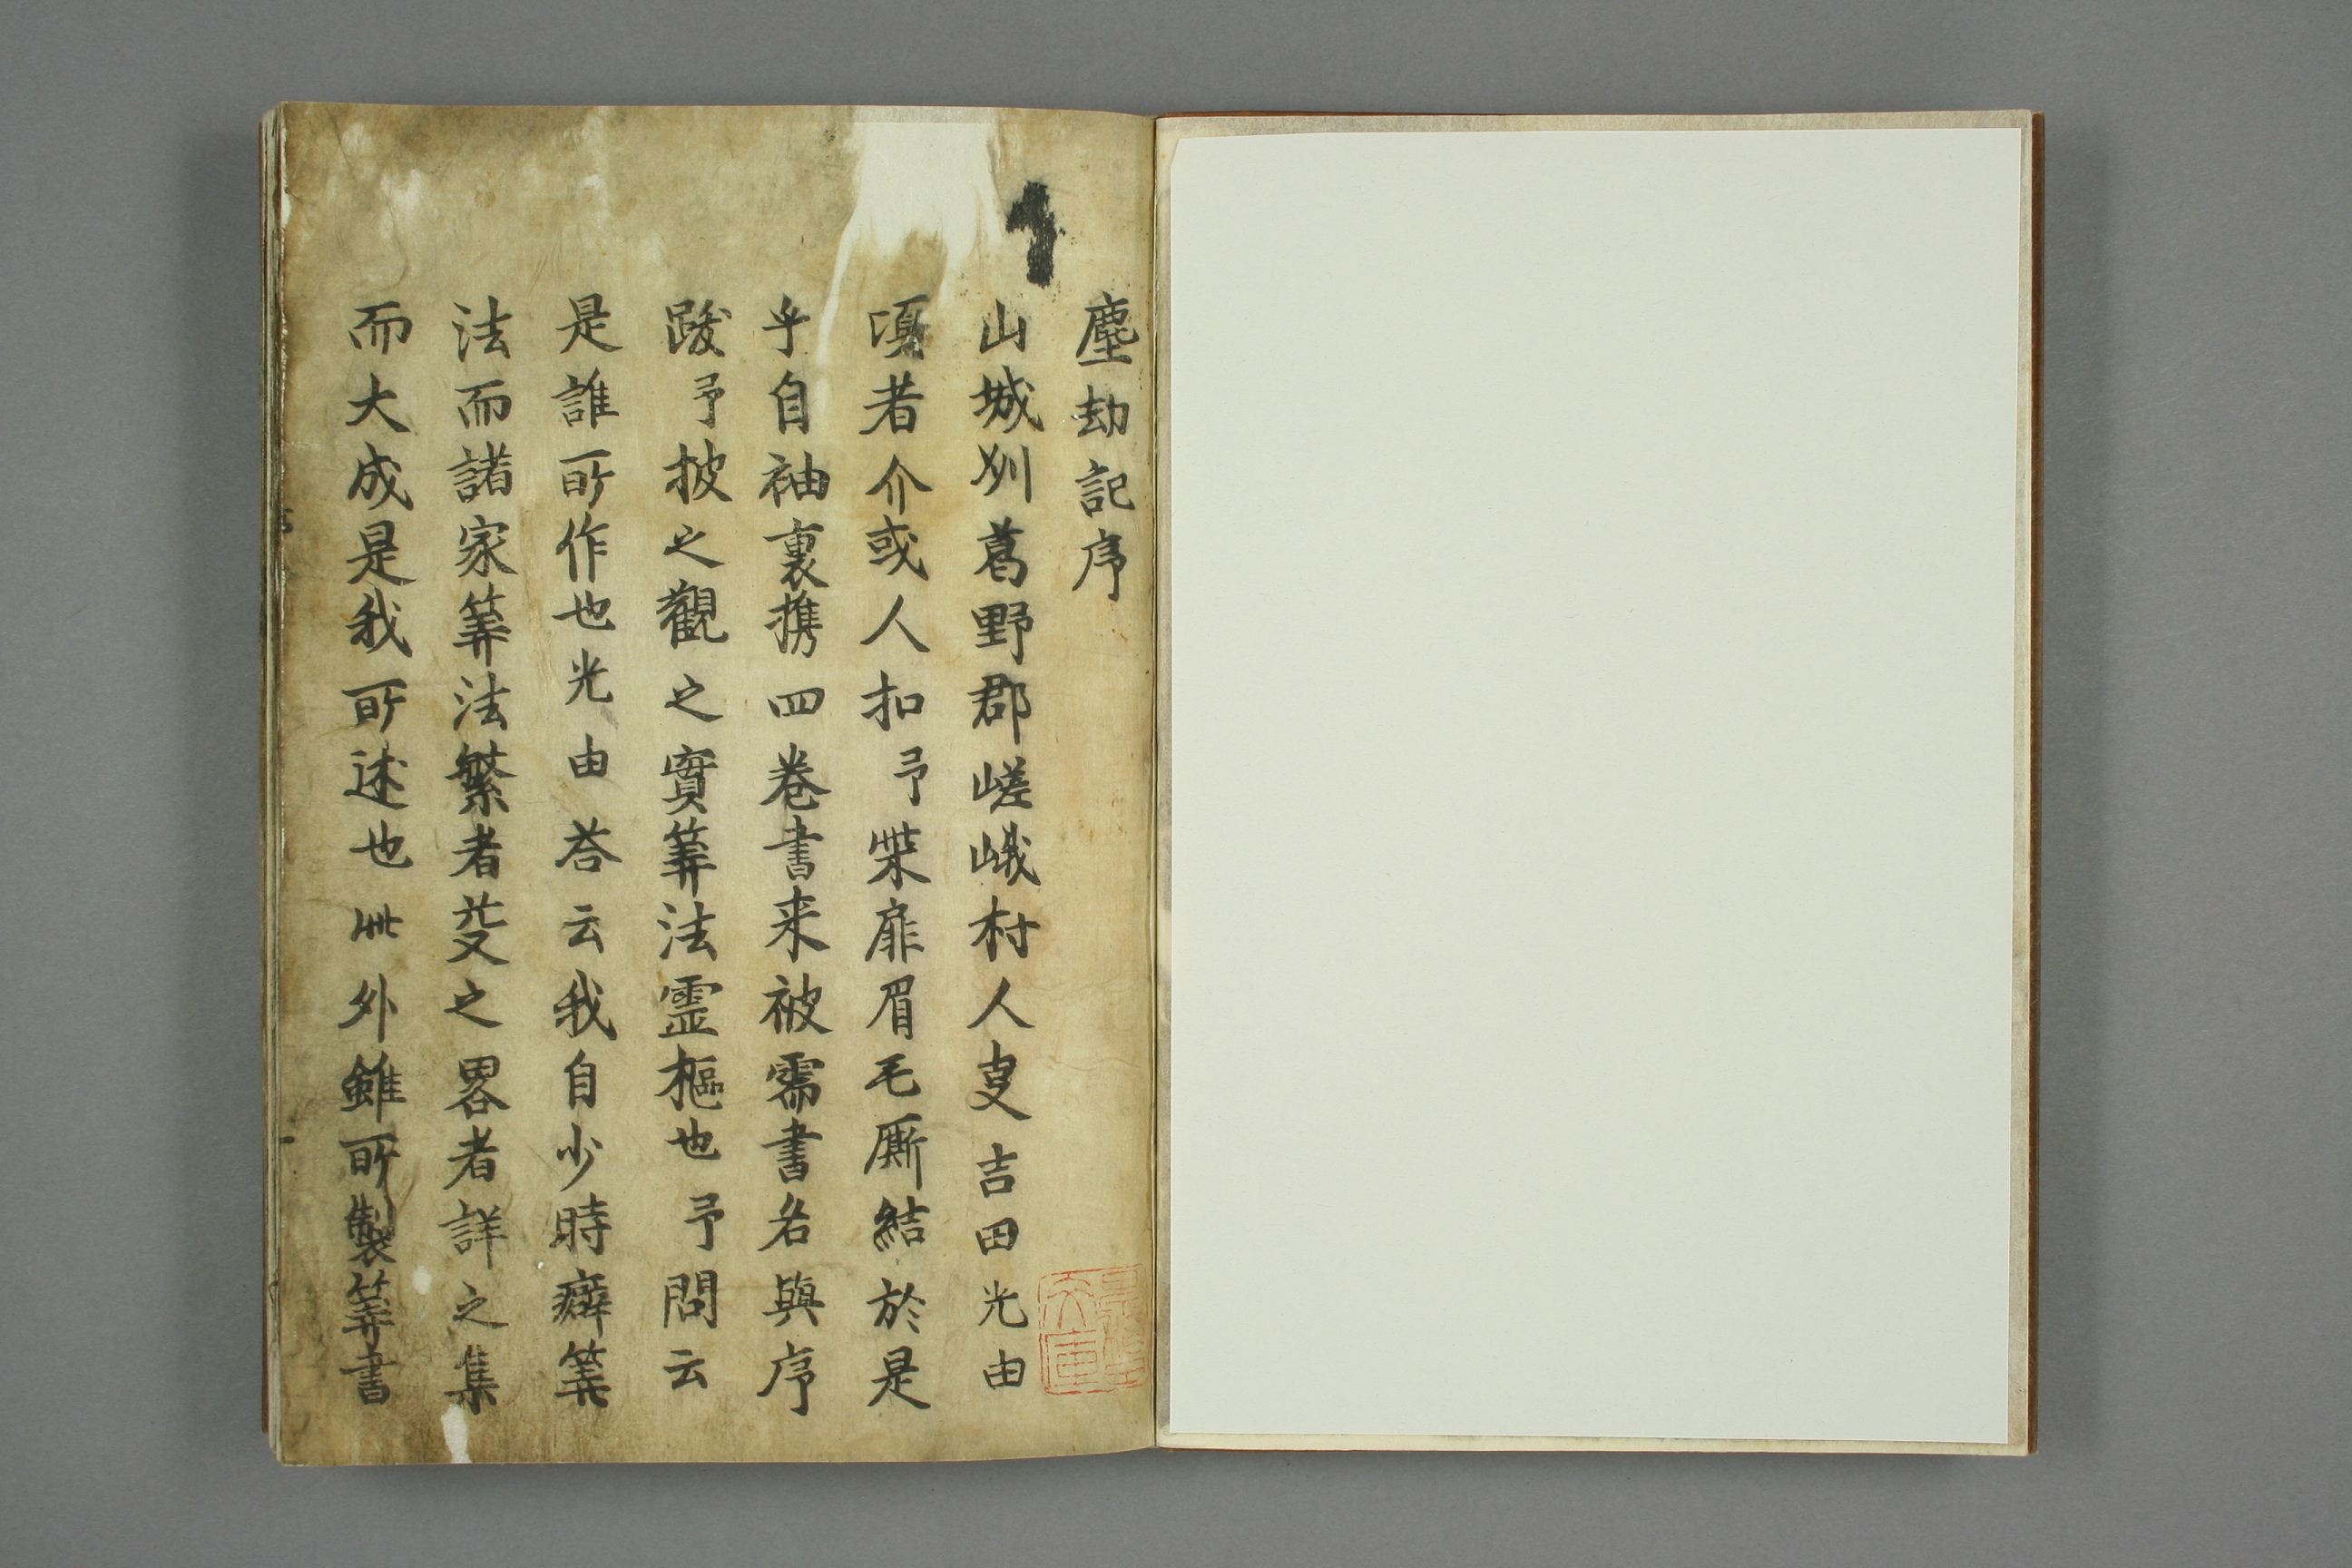 塵劫記序
山城州葛野郡嵯峨村人叟吉田光由
頃者介或人扣予柴扉眉毛厮結於是
乎自袖裏携四巻書来被需書名與序
跋予披之觀之實筭法霊樞也予問云
是誰所作也光由荅云我自少時癖筭
法而諸家筭法繁者芟之畧者詳之集
而大成是我所述也此外雖所製筭書